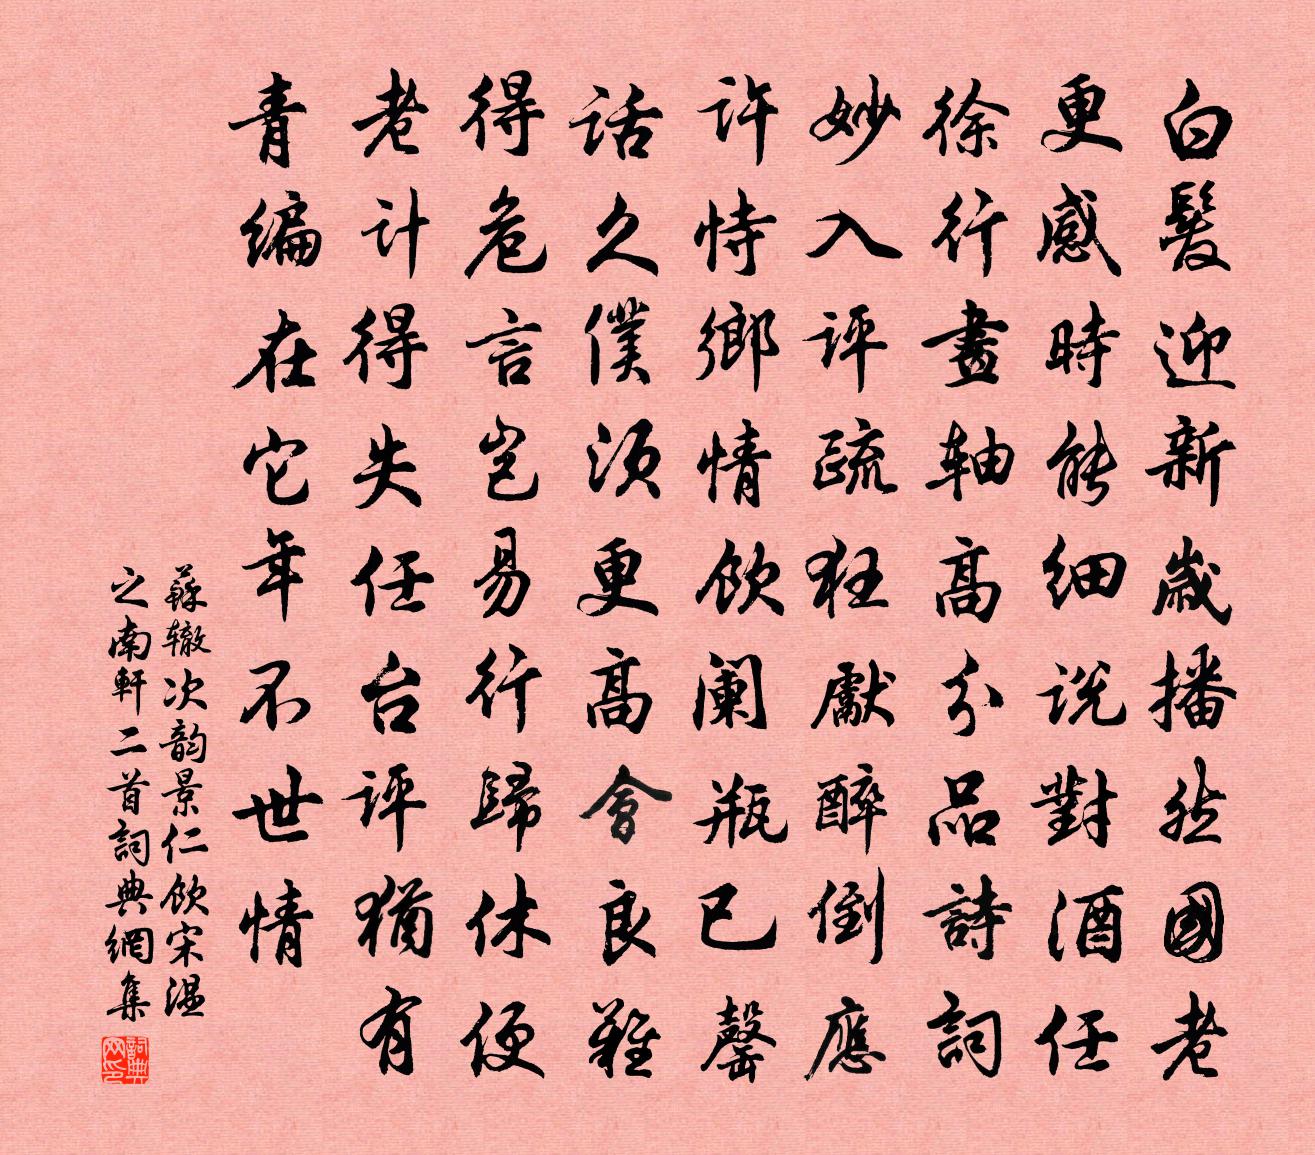 白髮迎新歲播然國老
更感時能細說對酒任
徐行畫軸高分品詩詞
妙入評疏狂獻醉倒應
許恃鄉情飲闌瓶已罄
話久僕須更高會良難
得危言豈易行歸休便
老計得失任台評猶有
青編在它年不世情
蘇轍次韵景仁飲宋温
之南軒二首詞典網集
詞典网印